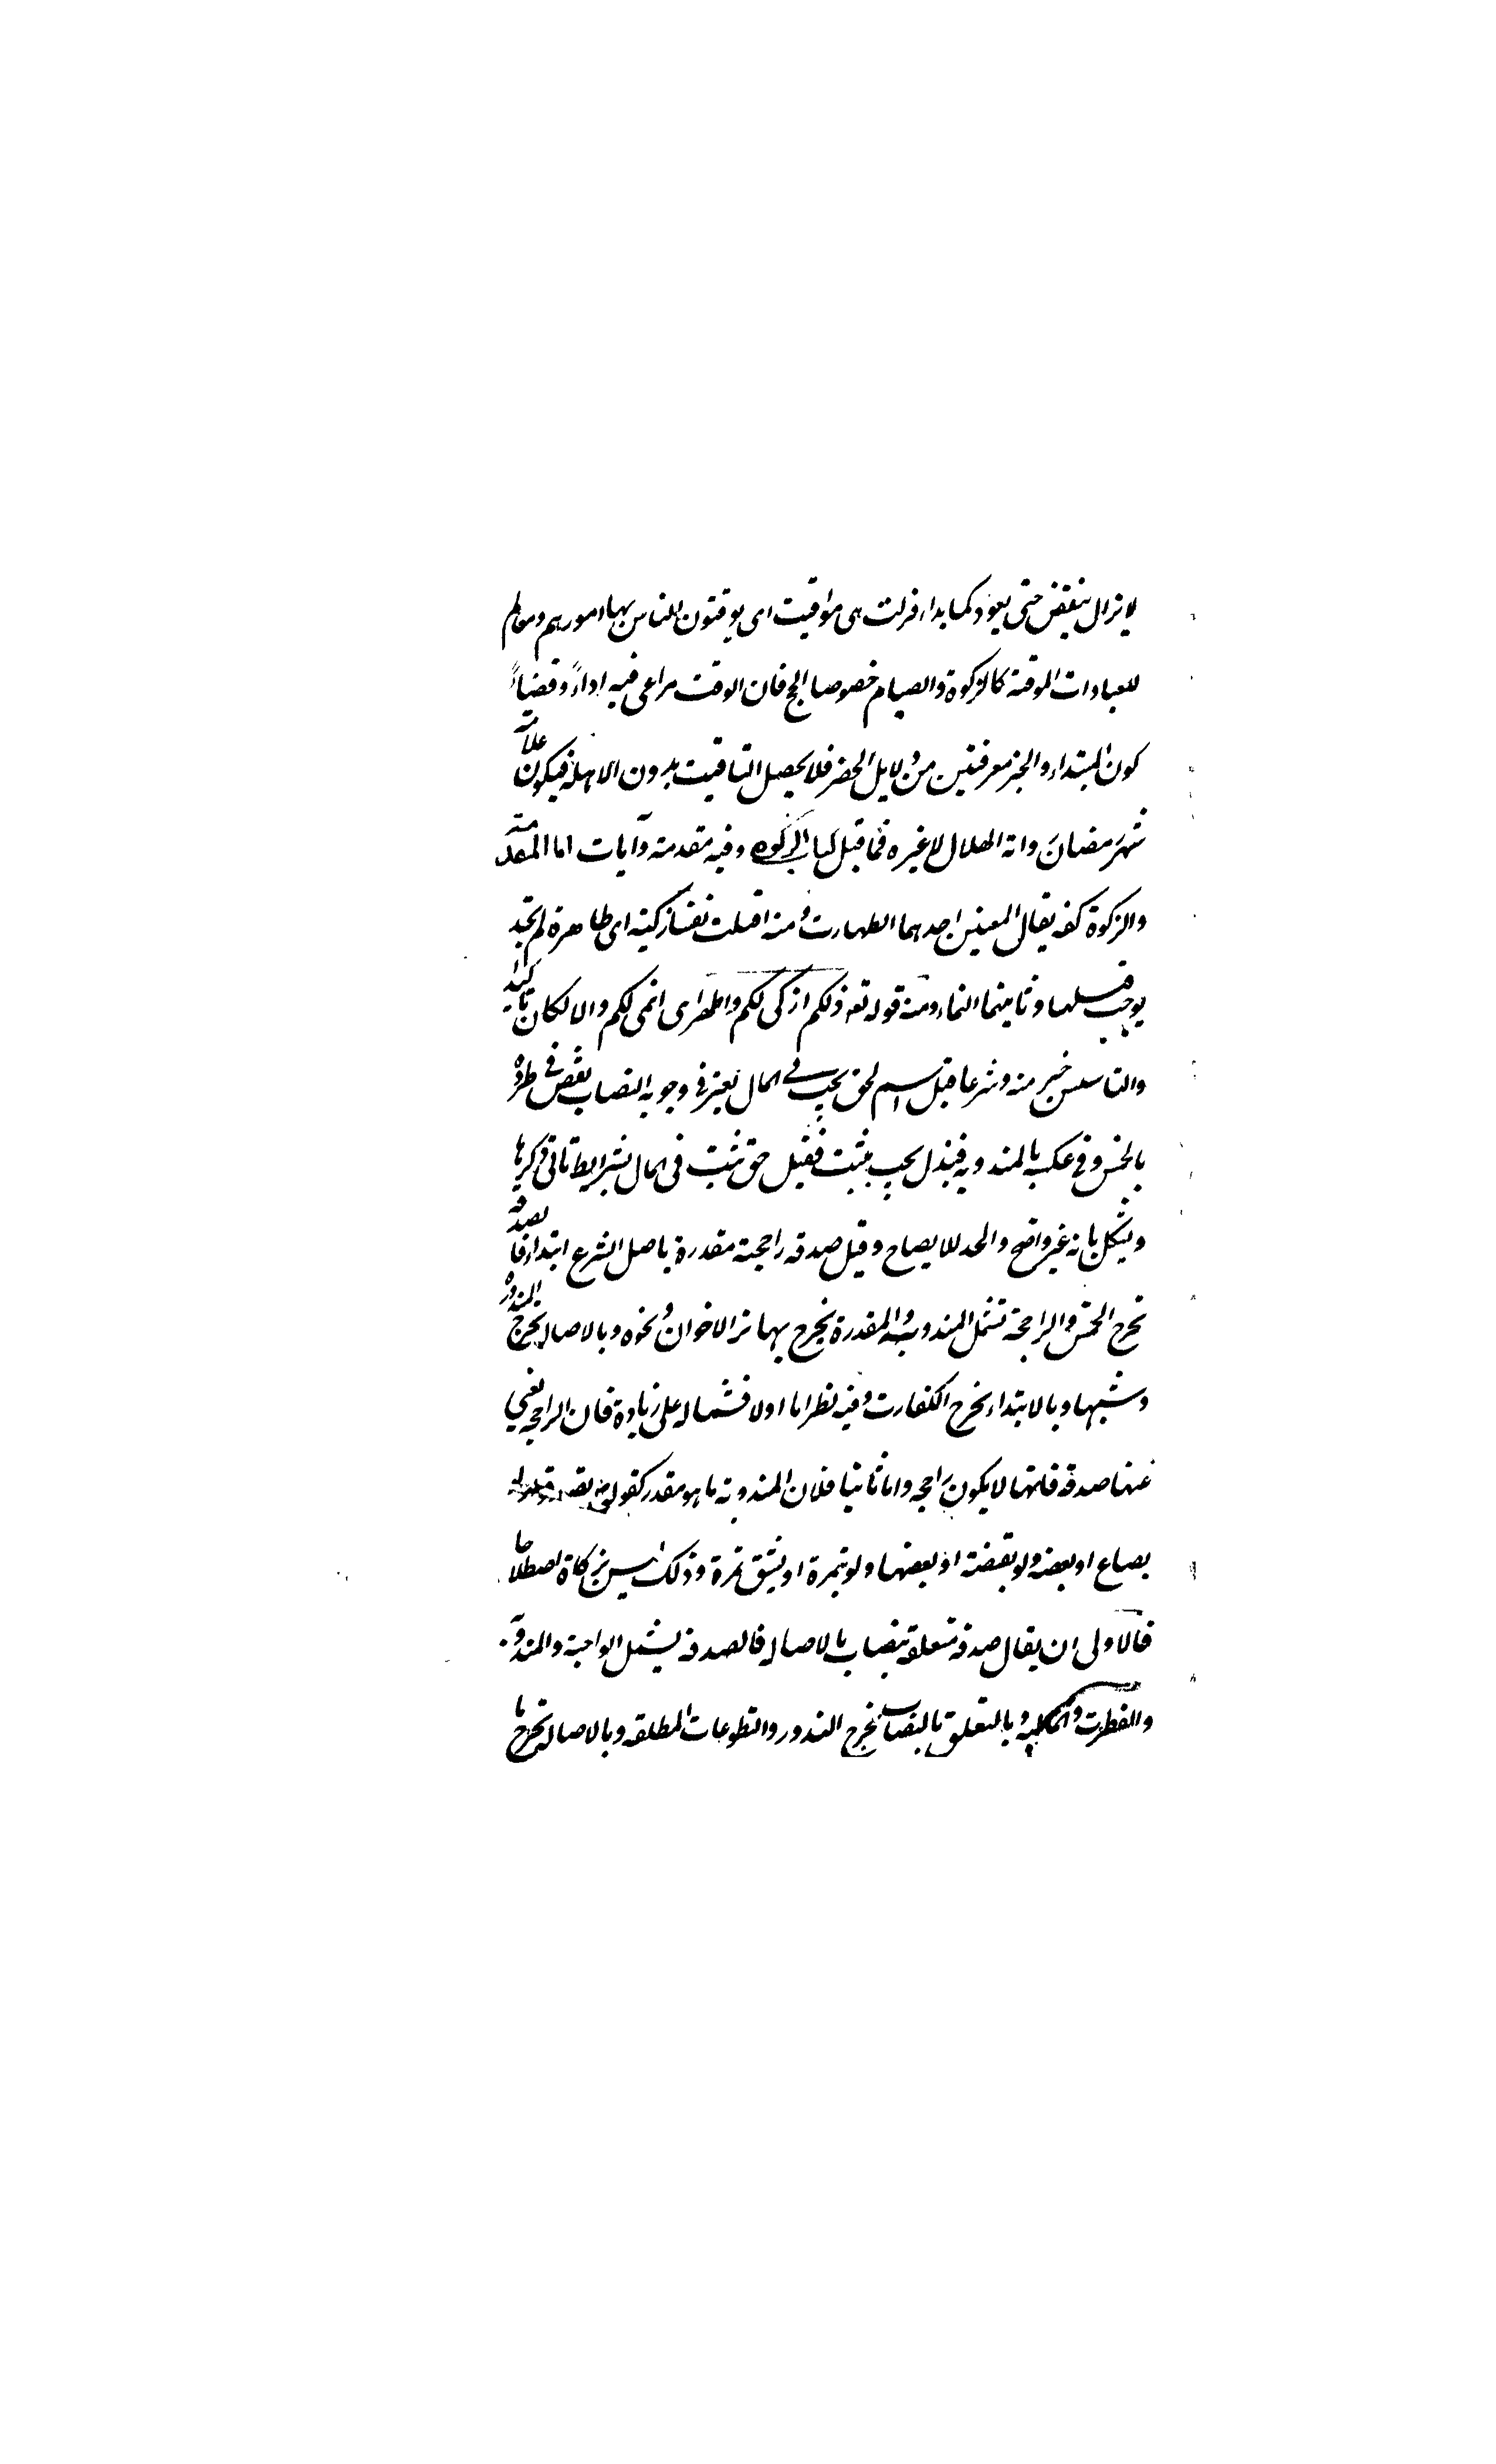 لا يزال ينقض حتى يعود كما بداء فنزلت هى مواقيت اى يوقتون الناس بها امورهم ومعالم
للعبادات الموقتة كالزكوة والصيام خصوصا الحج فان الوقت مراعى فيه اداءً وقضاءً
كون المبتداء والخبر معرفتين من دلايل الحصر فلا يحصل التاقيت بدون الاهلة فيكون علامة
شهر رمضان وانه الهلال لا غيره فما قبل كتاب الزكوه وفيه مقدمة وآيات اما المقدمة
والزكوة لغه يقال المعنيين احدهما الطهارت ومنه اقتلت نفسا زكية اى طاهرة لم تجد
يوجب قتلها وثانيهما النماء ومنه قوله تعه ذلكم ازكى لكم واطهر اى انمى لكم والا لكان تاكيد
والتاسيس خير منه وشرعا قيل اسم لحق يجب فى المال يعتبر فى وجوبه النصاب ينقض فى طرده
بالخمس وفى عكسه بالمندوبه فيبدل يجب بيثبت فقيل حق يثبت فى المال بشرايط تاتى ذكرها
ويشكل بانه غير واضح والحد للايضاح وقيل صدقه راجحة مقدرة باصل الشرع ابتداء فالصدقه
تخرج الخمس والراجحة تشمل المندوبة والمقدرة يخرج بها بر الاخوان ونحوه وبالاصالة يخرج المنذورة
وشبهها وبالابتداء يخرج الكفارت وفيه نظر اما اولا فشماله على زيادة فان الراجحه يغنى
عنها صدقة فانها لا يكون راجحه واما ثانيا فلان المندوبة ما هو مقدر كقوله تصدقوا ولو
بصاع او بعضه ولو بقبضة او بعضها ولو بتمرة او بشق تمرة وذلك ليس بزكاة اصطلاحا
فالاولى ان يقال صدقة متعلقة بنصاب بالاصاله فالصدقة يشمل الواجبة والمندوبة
والفطرت والماليه وبالتعلق بالنصاب يخرج النذور والتطوعات المطلقه وبالاصالة تخرج ما